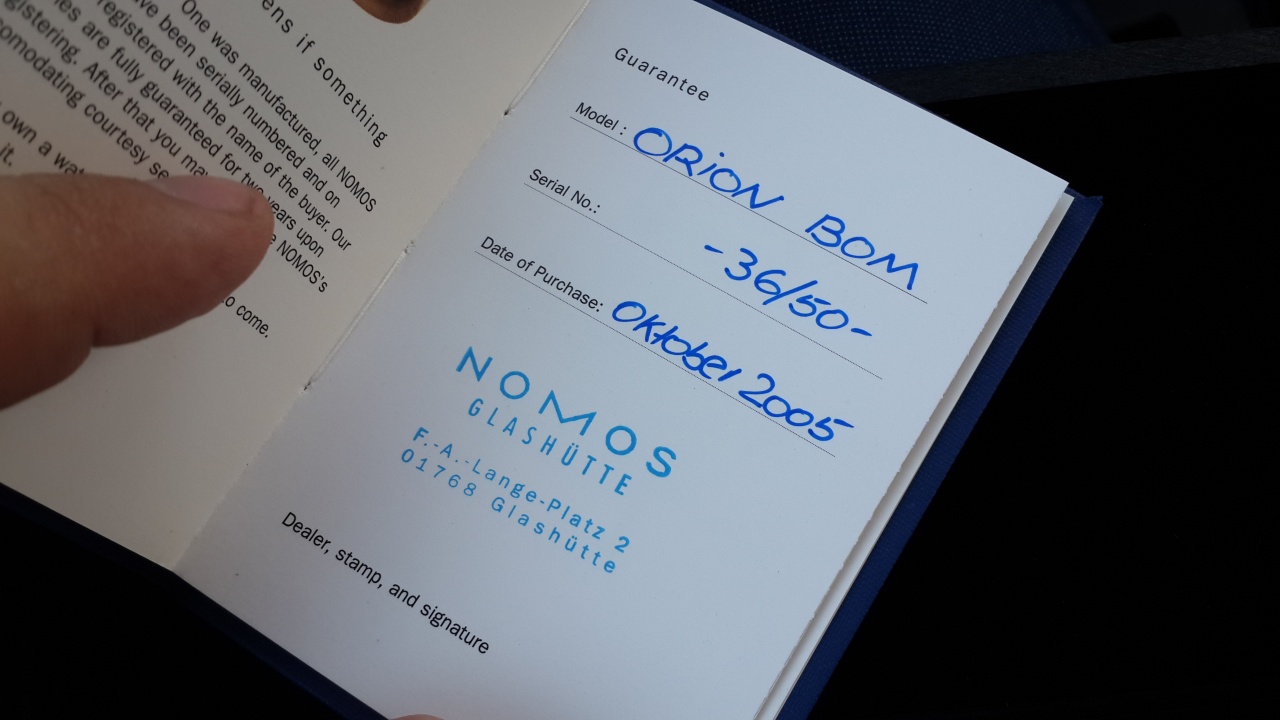 ens if something
One was manufactured, all NOMOS
ve been serially numbered and on
registered with the name of the buyer. Our
es are fully guaranteed for two years upon
gistering. After that you may NOMOS's
comodating courtesy se
o come.
own a wat
it.
Guarantee
Model : ORiON BOM
Serial No.: -36/50-
Date of Purchase: Oktober 2005
NOMOS
GLASHÜTTE
F.-A.-Lange-Platz 2
01768 Glashütte
Dealer, stamp, and signature